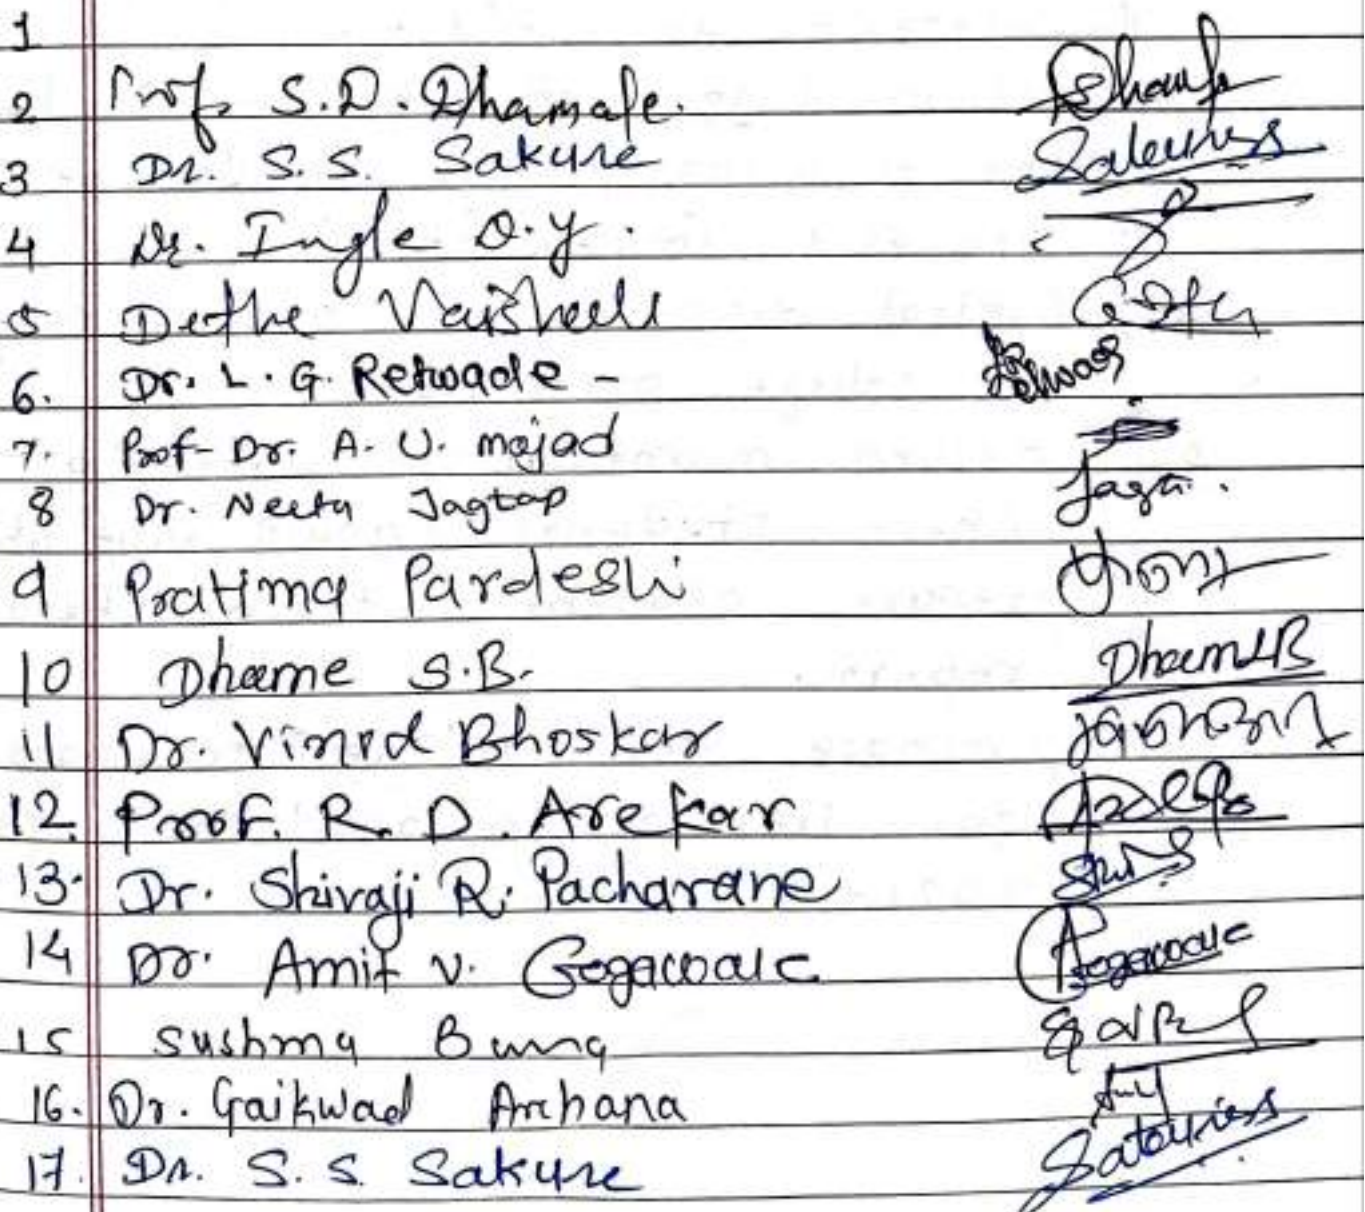 1
2 Prof. S.D. Dhamale.
3 Dr. S. S. Sakure Sakuress
4 Dr. Ingle O.Y.
5 Dethe Vaishali
6. Dr. L. G. Retwade -
7. Prof- Dr. A. U. mojad
8 Dr. Neeta Jagtap
9 Pratima Pardeshi
10 Dhame S.B. DhameSB
11 Dr. Vinod Bhoskar
12. Prof. R. D. Arekar
13. Dr. Shivaji R. Pacharane
14 Dr. Amit V. Gogawale Gogawale
15 Sushma Bung
16. Dr. Gaikwad Archana
17. Dr. S. S. Sakure Sakuress